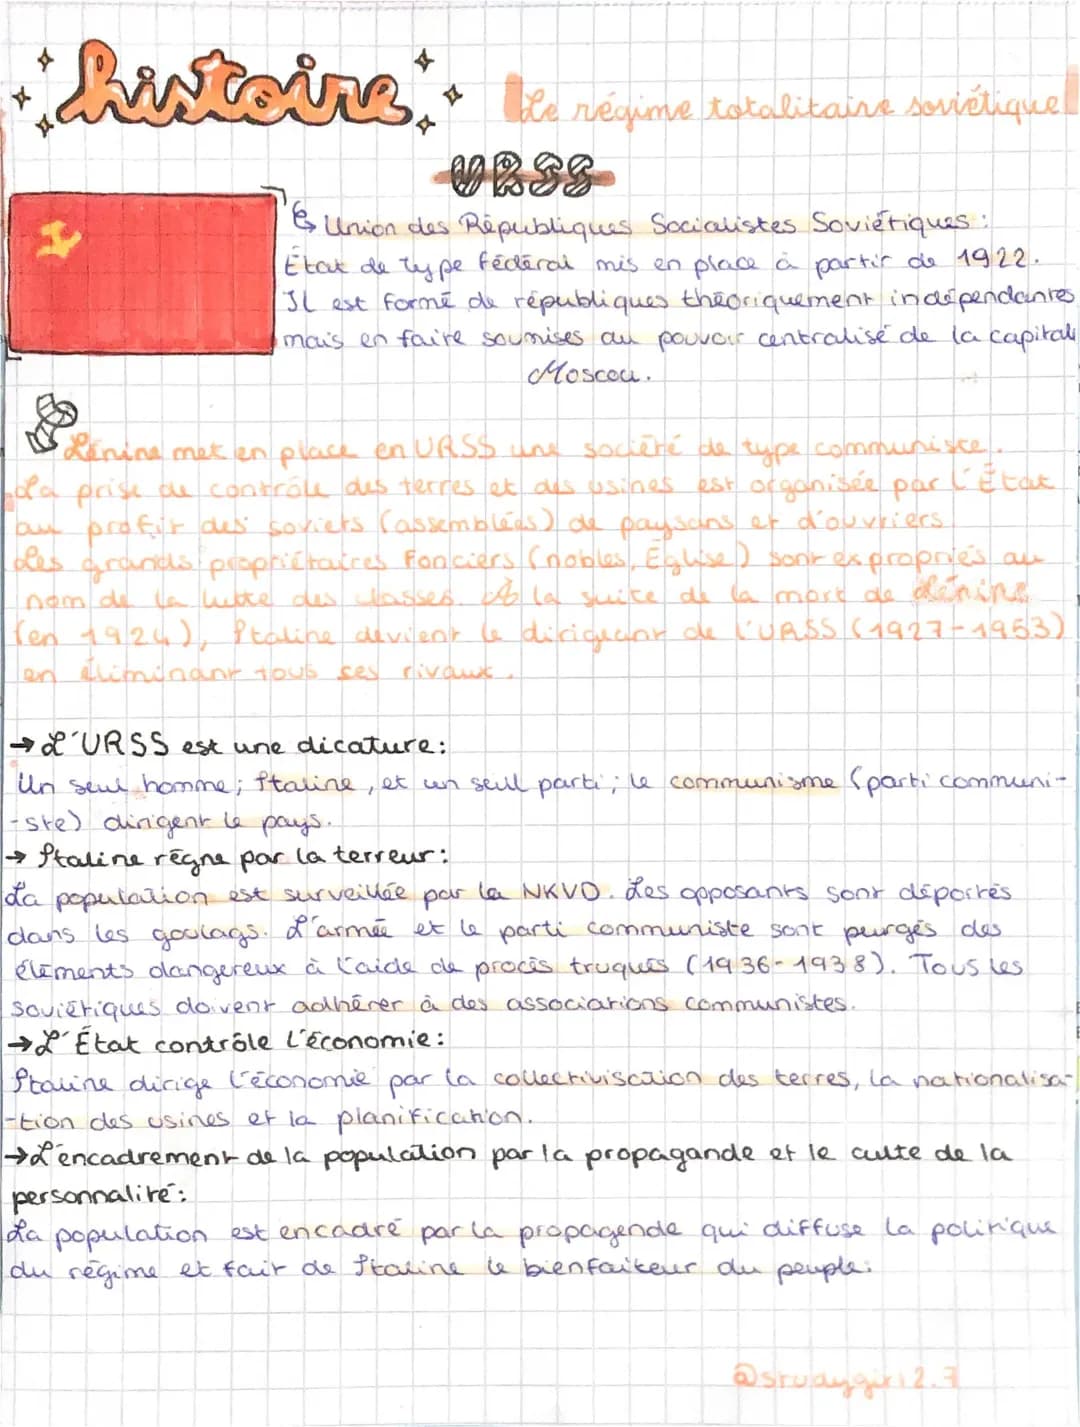 histoire
Le régime totalitaire soviétique
URSS
Union des Républiques Socialistes Soviétiques :
État de type fédéral mis en place à partir de 1922.
Il est formé de républiques théoriquement indépendantes
mais en faite soumises au pouvoir centralisé de la capitale
Moscou.
Lénine met en place en URSS une société de type communiste.
La prise de contrôle des terres et des usines est organisée par l'État
au profit des soviets (assemblées) de paysans et d'ouvriers.
Les grands propriétaires fonciers (nobles, Église) sont expropriés au
nom de la lutte des classes. À la suite de la mort de Lénine
(en 1924), Staline devient le dirigeant de l'URSS (1927-1953)
en éliminant tous ses rivaux.
→ L'URSS est une dicature :
Un seul homme ; Staline, et un seul parti ; le communisme (parti communi-
-ste) dirigent le pays.
→ Staline règne par la terreur :
La population est surveillée par la NKVD. Les opposants sont déportés
dans les goulags. L'armée et le parti communiste sont purgés des
éléments dangereux à l'aide de procès truqués (1936-1938). Tous les
soviétiques doivent adhérer à des associations communistes.
→ L'État contrôle l'économie :
Staline dirige l'économie par la collectivisation des terres, la nationalisa-
-tion des usines et la planification.
→ L'encadrement de la population par la propagande et le culte de la
personnalité :
La population est encadré par la propagende qui diffuse la politique
du régime et fait de Staline le bienfaiteur du peuple.
@studygirl2.7